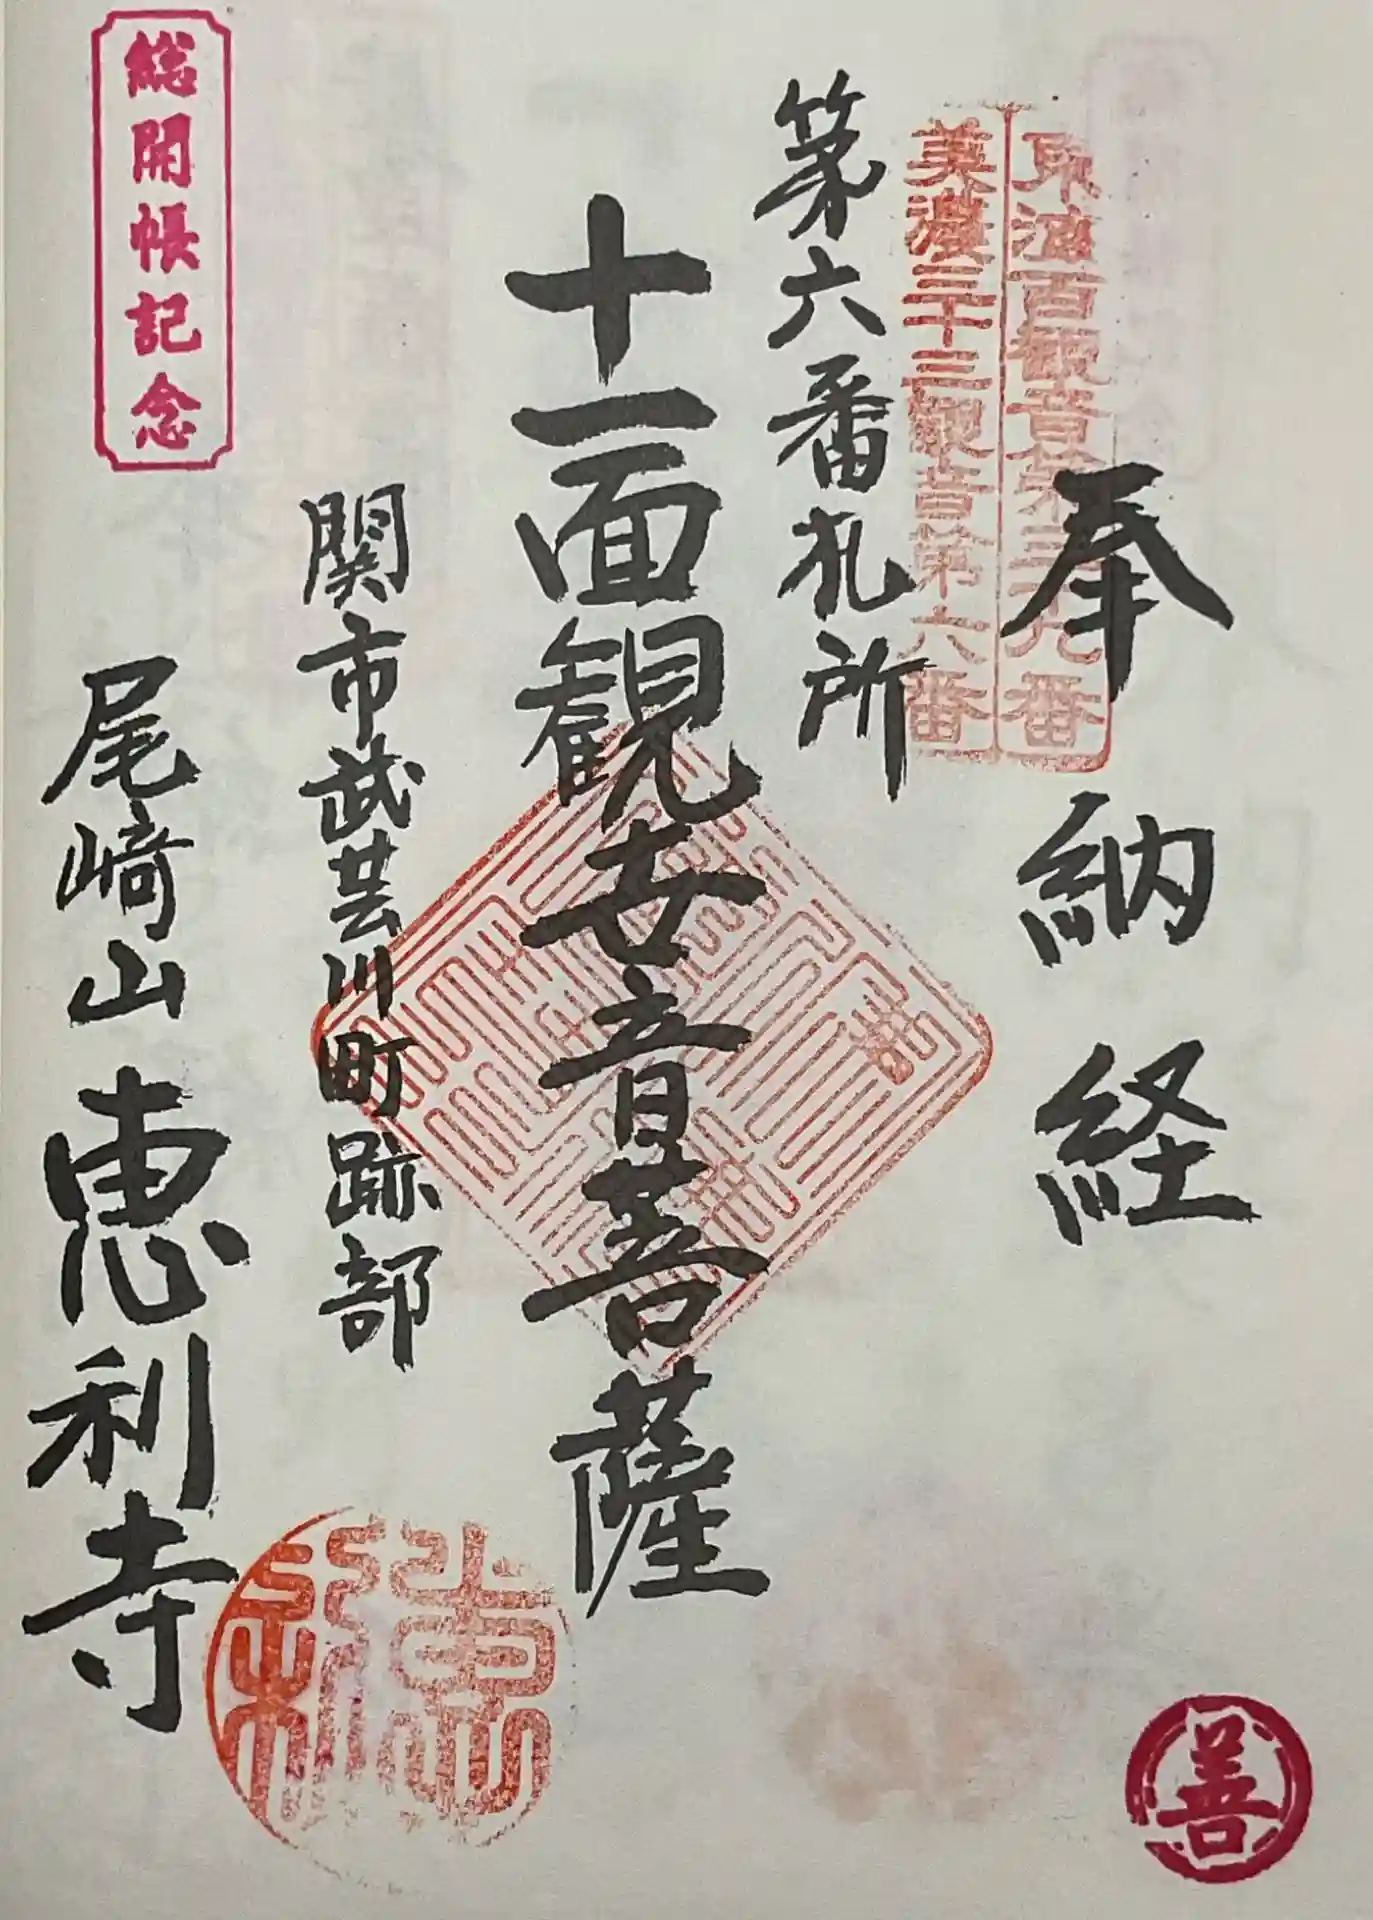 奉納経
東海百観音第三十九番
美濃三十三観音第六番
第六番札所
十一面観世音菩薩
関市武芸川町跡部
尾崎山 恵利寺
総開帳記念
善